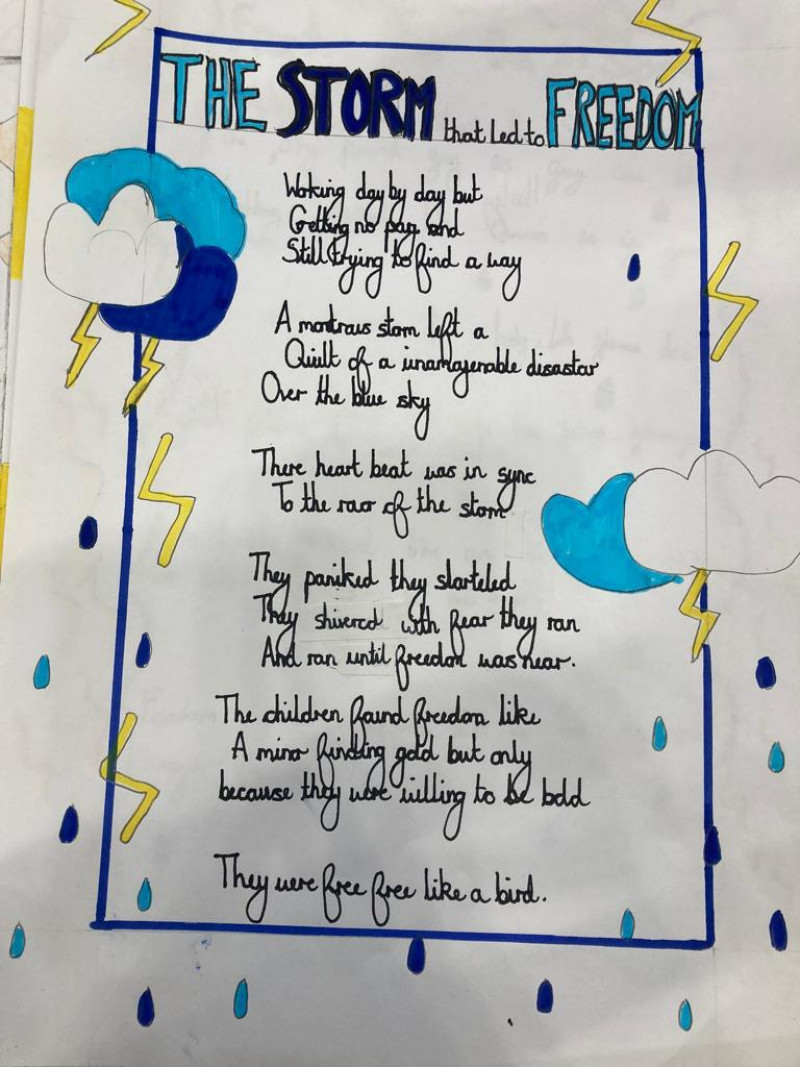 THE STORM that led to FREEDOM
Woking day by day but
Getting no pay and
Still trying to find a way
A montraus storm left a
Quilt of a unamagenable disastar
Over the blue sky
There heart beat was in sync
To the raor of the storm
They paniked they slarteled
They shivered with fear they ran
And ran until freedom was near.
The children found freedom like
A minor finding gold but only
because they were willing to be bold
They were free free like a bird.